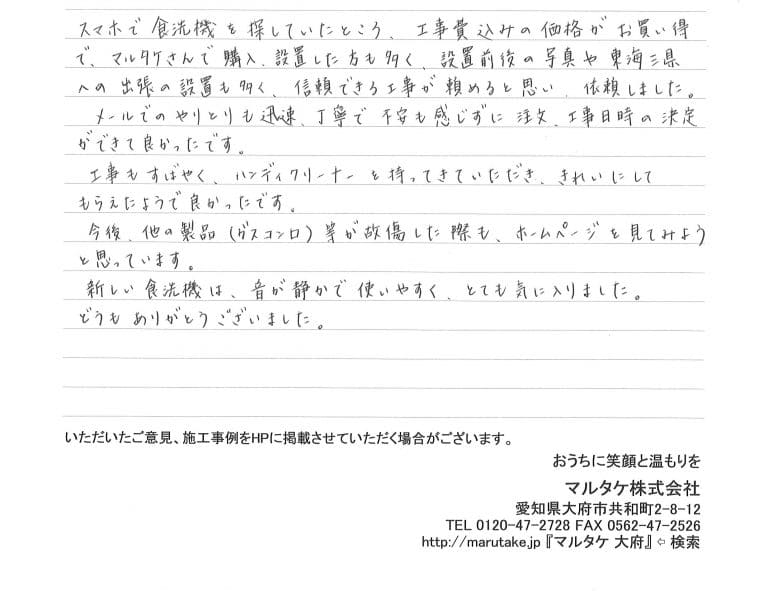 スマホで食洗機を探していたところ、工事費込みの価格がお買い得
で、マルタケさんで購入、設置した方も多く、設置前後の写真や東海三県
への出張の設置も多く、信頼できる工事が頼めると思い、依頼しました。
メールでのやりとりも迅速、丁寧で不安も感じずに注文、工事日時の決定
ができて良かったです。
工事もすばやく、ハンディクリーナーを持ってきていただき、きれいにして
もらえたようで良かったです。
今後、他の製品(ガスコンロ)等が故傷した際も、ホームページを見てみよう
と思っています。
新しい食洗機は、音が静かで使いやすく、とても気に入りました。
どうもありがとうございました。
いただいたご意見、施工事例をHPに掲載させていただく場合がございます。
おうちに笑顔と温もりを
マルタケ株式会社
愛知県大府市共和町2-8-12
TEL 0120-47-2728 FAX 0562-47-2526
http://marutake.jp『マルタケ 大府』⇦ 検索